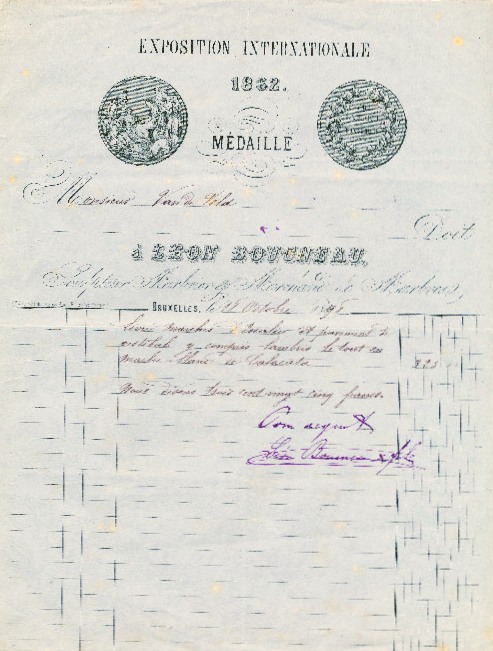 EXPOSITION INTERNATIONALE
1862.
MÉDAILLE
Monsieur Van de Velde
Doit
à LÉON BOUCNEAU,
Sculpteur Marbrier & Marchand de Marbres,
BRUXELLES, le Octobre
Livré marches d'escalier et panneaux de
vestibule y compris lambris le tout en
marbre blanc de
325
Nous disons trois cent vingt cinq francs
Pour acquit
Léon Boucneau & fils